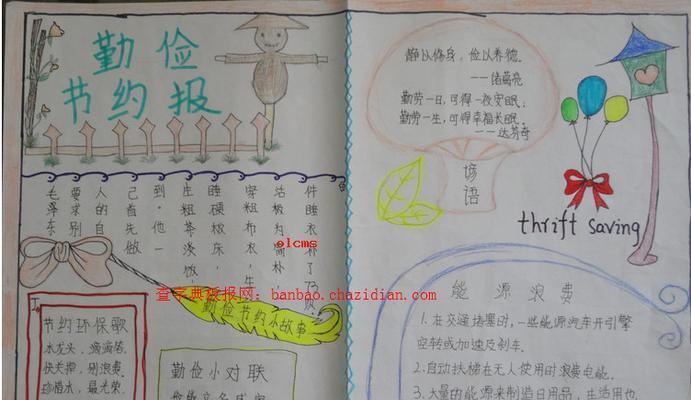 勤俭
节约报
毛泽东
要求别
人的自
己首先做
到。他一
生粗茶淡饭,
睡硬板床,
穿粗布衣,生
活极为简朴
件睡衣补了
olcms
查字典板报网：banbao.chazidian.com
勤俭节约小故事
节约环保歌
水龙头，滴滴落，
快关掉，别浪费，
珍惜水，最光荣。
勤俭小对联
静以修身，俭以养德。
——诸葛亮
勤劳一日，可得一夜安眠；
勤劳一生，可得幸福长眠。
——达芬奇
谚语
thrift saving
能源浪费
1.在交通堵塞时，一些能源汽车开引擎
空转或加速及刹车.
2.自动扶梯在无人使用时浪费电能.
3.大量的能源来制造日用品，生活用也